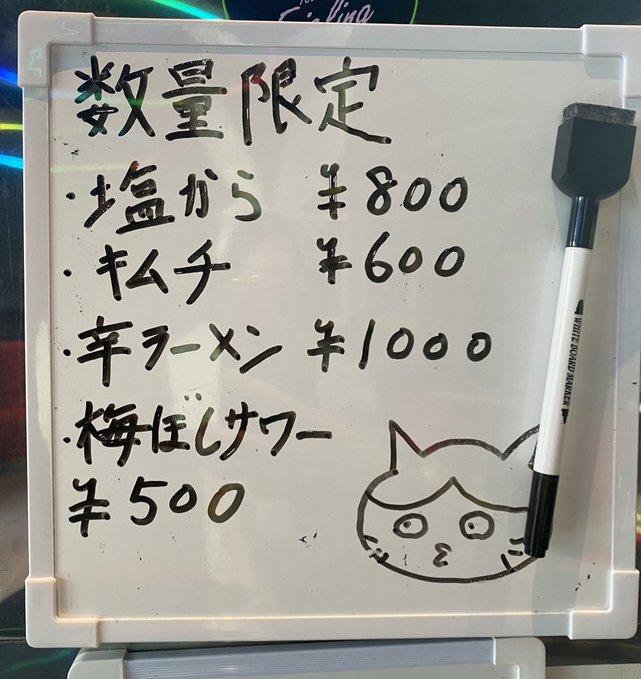 数量限定
・塩から ¥800
・キムチ ¥600
・辛ラーメン ¥1000
・梅ぼしサワー
¥500
WHITE BOARD MARKER